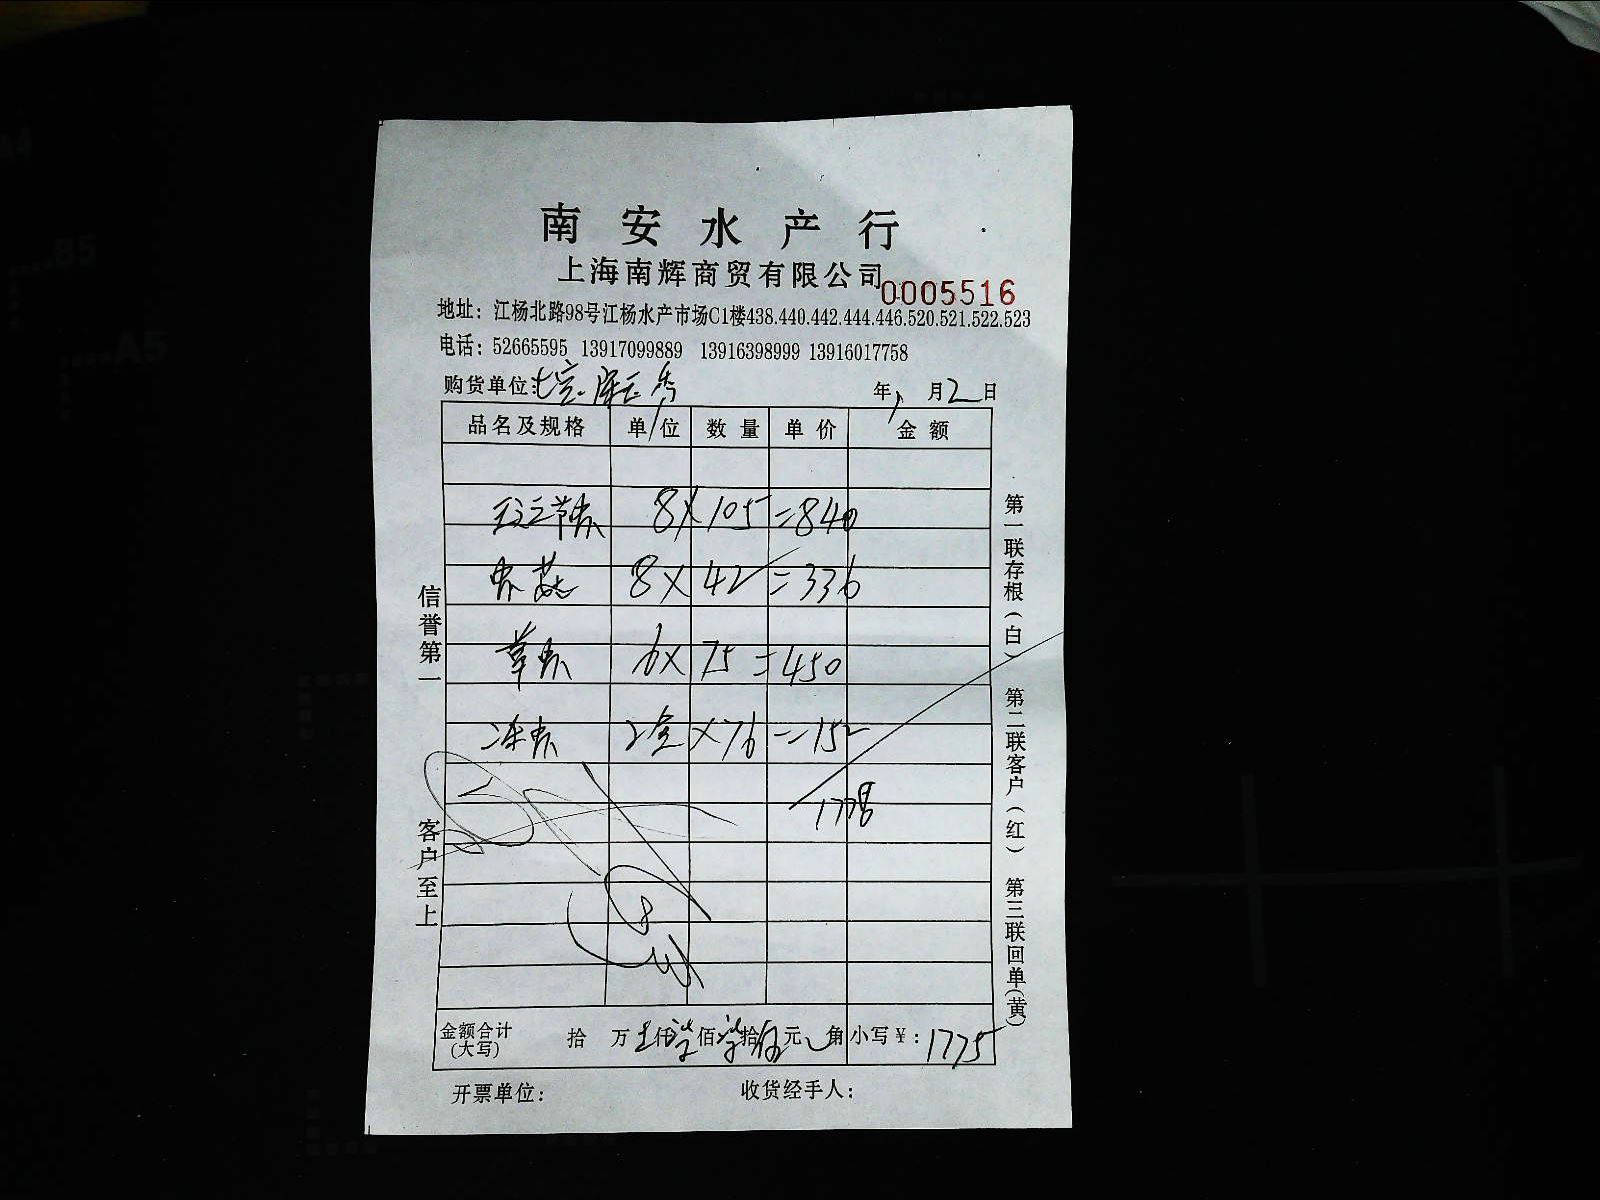 南安水产行
上海南辉商贸有限公司
0005516
地址：江杨北路98号江杨水产市场C1楼438.440.442.444.446.520.521.522.523
电话：52665595 13917099889 13916398999 13916017758
购货单位： 年 月2日
品名及规格 单位 数量 单价 金额
8×105=840
8×42=336
草虾 6×75=450
冻虾 2盒×76=152
金额合计(大写) 拾 万 仟 佰 拾 元 角 小写￥：1775
开票单位： 收货经手人：
信誉第一 客户至上
第一联存根(白) 第二联客户(红) 第三联回单(黄)